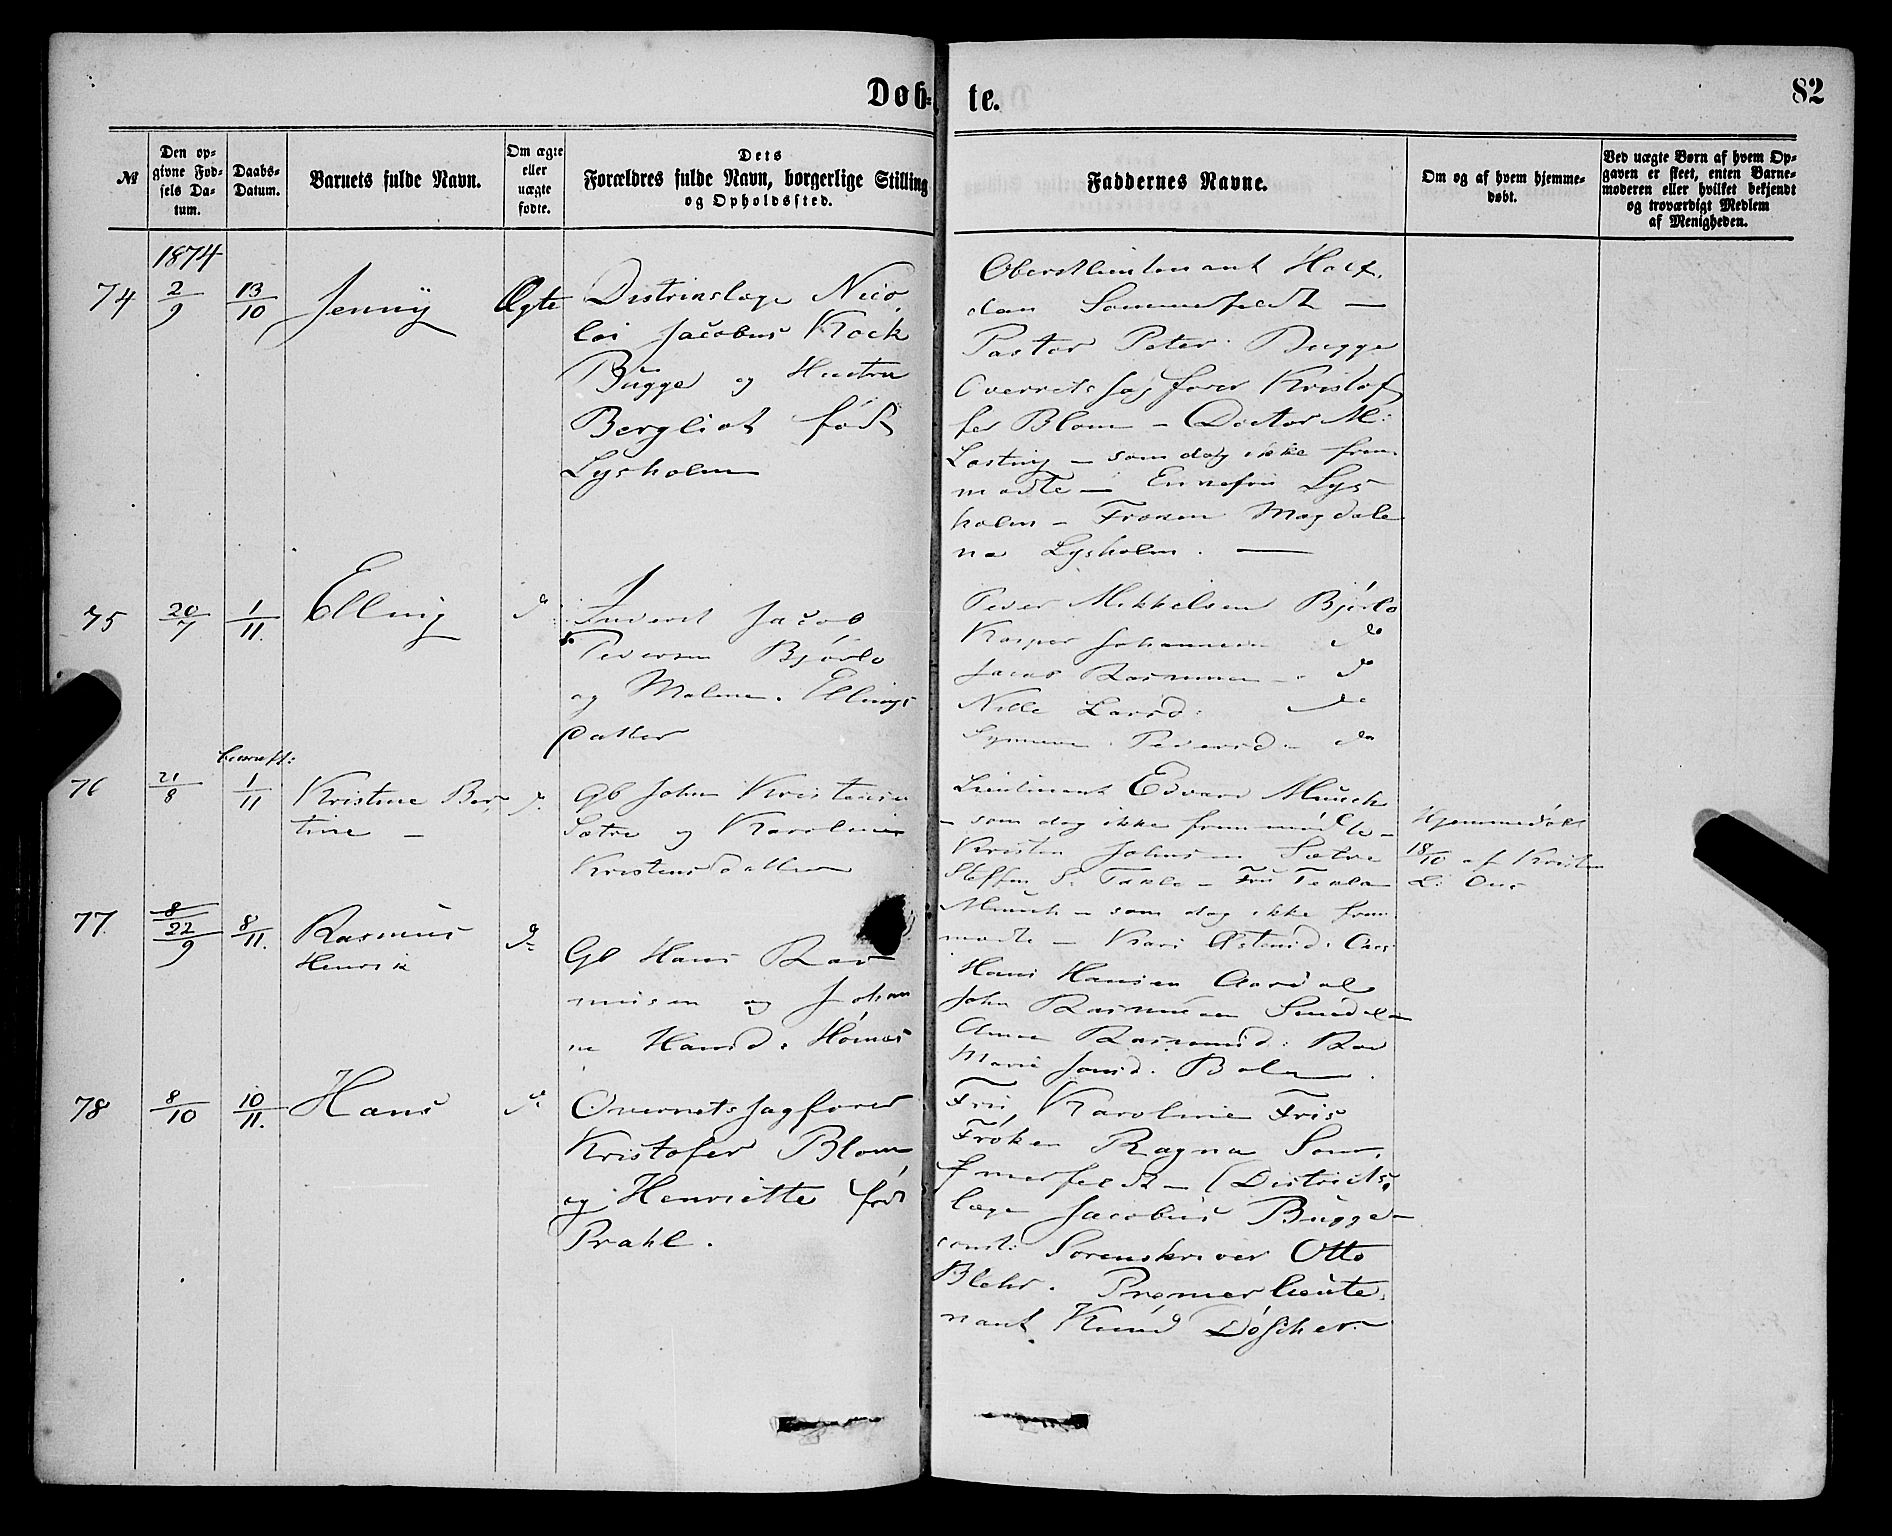 Døb=
te.
82
№
Den op=
givne Fød=
sels Da=
tum.
Daabs=
Datum.
Barnets fulde Navn.
Om ægte
eller
uægte
fødte.
Dets
Forældres fulde Navn, borgerlige Stilling
og Opholdssted.
Faddernes Navne.
Om og af hvem hjemme=
døbt.
Ved uægte Børn af hvem Op=
gaven er skeet, enten Barne=
moderen eller hvilket bekjendt
og troværdigt Medlem
af Menigheden.
1874
74
2/9
13/10
Jenny
Ægte
Distrinslæge Nico
lai Jacobus Kock
Bugge og Hustru
Bergliot født
Lysholm
Oberstlieutenant Half.
dan Sommerfeldt —
Pastor Peter Bugge
Overretssagfører Kristof
fer Blom – Doctor M:
– som dog ikke frem
mødte –
Lys
holm – Frøken Magdale
na Lysholm. —
75
20/7
1/11.
Elling
do
Inderst Jacob
Pedersen Bjørlo
og Malene Ellings
Datter
Peder Mikkelsen Bjørlo
Kasper Johannesen do
Jacob Rasmussen – do
Nille Larsd: do
Pedersd – do
76
21/8
1/11
Kristine Ber
tine –
do
Gb John Kristensen
Sætre og Karoline
Kristensdatter
Lieutenant Edvard Munch
– som dog ikke fremmødte –
Kristen Johnsen Sætre
Steffen S. – Fru Thekla
Munch – som dog ikke frem
mødte – Kari
Hjemmedøbt
18/10 af Kristen
77
8
22/9
8/11.
Rasmus
Henrik
do
Gb Hans Ras
musen og Johan
ne Hansd. Hornes
Hans Hansen Aardal
John Rasmusen
Anna Rasmusd:
Marie
78
8/10
10/11.
Hans
do
Overretssagfører
Kristofer Blom
og Henriette født
Prahl.
Fru Karoline Friis
Frøken Ragna Som
merfeldt – Districts
læge Jacobus Bugge –
const: Sorenskriver Otto
Blehr. Premierlieute
nant Knud Døscher.